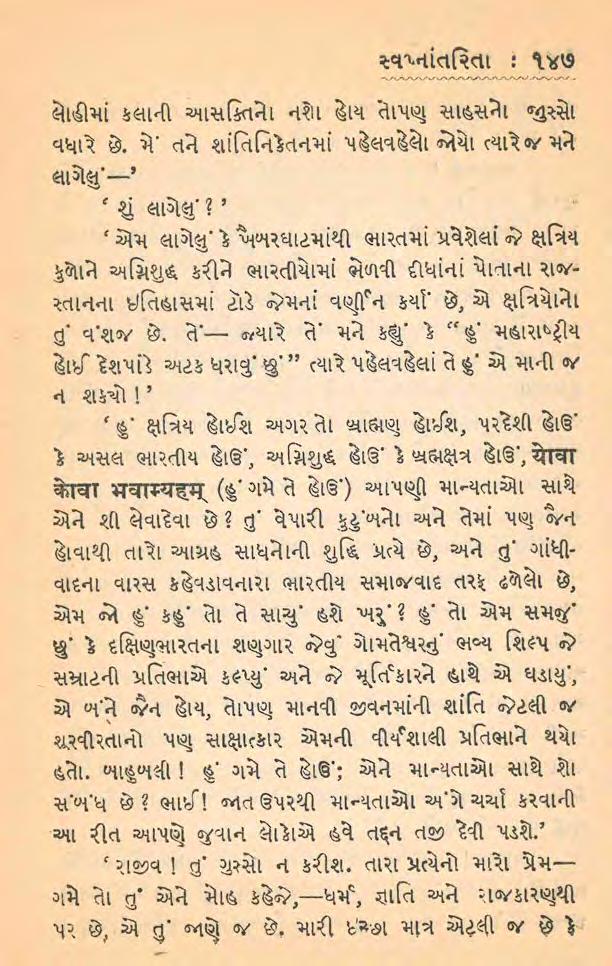 સ્વપ્નાંતરિતા : ૧૪૭
લોહીમાં કલાની આસક્તિનો નશો હોય તોપણ સાહસનો જુસ્સો
વધારે છે. મેં તને શાંતિનિકેતનમાં પહેલવહેલો જોયો ત્યારે જ મને
લાગેલું—’
‘ શું લાગેલું ? ’
‘ એમ લાગેલું કે ખૈબરઘાટમાંથી ભારતમાં પ્રવેશેલાં જે ક્ષત્રિય
કુળોને અગ્નિશુદ્ધ કરીને ભારતીયોમાં ભેળવી દીધાંનાં પોતાના રાજ-
સ્તાનના ઇતિહાસમાં ટૉડે જેમનાં વર્ણન કર્યાં છે, એ ક્ષત્રિયોનો
તું વંશજ છે. તેં— જ્યારે તેં મને કહ્યું કે “ હું મહારાષ્ટ્રીય
હોઈ દેશપાંડે અટક ધરાવું છું ” ત્યારે પહેલવહેલાં તે હું એ માની જ
ન શક્યો ! ’
‘ હું ક્ષત્રિય હોઈશ અગર તો બ્રાહ્મણ હોઈશ, પરદેશી હોઉં
કે અસલ ભારતીય હોઉં, અગ્નિશુદ્ધ હોઉં કે બ્રહ્મક્ષત્ર હોઉં, યોવા
કોવા भवाम्यहम् (હું ગમે તે હોઉં) આપણી માન્યતાઓ સાથે
એને શી લેવાદેવા છે ? તું વેપારી કુટુંબનો અને તેમાં પણ જૈન
હોવાથી તારો આગ્રહ સાધનોની શુદ્ધિ પ્રત્યે છે, અને તું ગાંધી-
વાદના વારસ કહેવડાવનારા ભારતીય સમાજવાદ તરફ ઢળેલો છે,
એમ જો હું કહું તો તે સાચું હશે ખરું ? હું તો એમ સમજું
છું કે દક્ષિણભારતના શણગાર જેવું ગોમતેશ્વરનું ભવ્ય શિલ્પ જે
સમ્રાટની પ્રતિભાએ કલ્પ્યું અને જે મૂર્તિકારને હાથે એ ઘડાયું,
એ બંને જૈન હોય, તોપણ માનવી જીવનમાંની શાંતિ જેટલી જ
શૂરવીરતાનો પણ સાક્ષાત્કાર એમની વીર્યશાલી પ્રતિભાને થયો
હતો. બાહુબલી ! હું ગમે તે હોઉં; એને માન્યતાઓ સાથે શો
સંબંધ છે ? ભાઈ ! જાત ઉપરથી માન્યતાઓ અંગે ચર્ચા કરવાની
આ રીત આપણે જુવાન લોકોએ હવે તદ્દન તજી દેવી પડશે.’
‘ રાજીવ ! તું ગુસ્સો ન કરીશ. તારા પ્રત્યેનો મારો પ્રેમ—
ગમે તો તું એને મોહ કહેજે,—ધર્મ, જ્ઞાતિ અને રાજકારણથી
પર છે, એ તું જાણે જ છે. મારી ઇચ્છા માત્ર એટલી જ છે કે